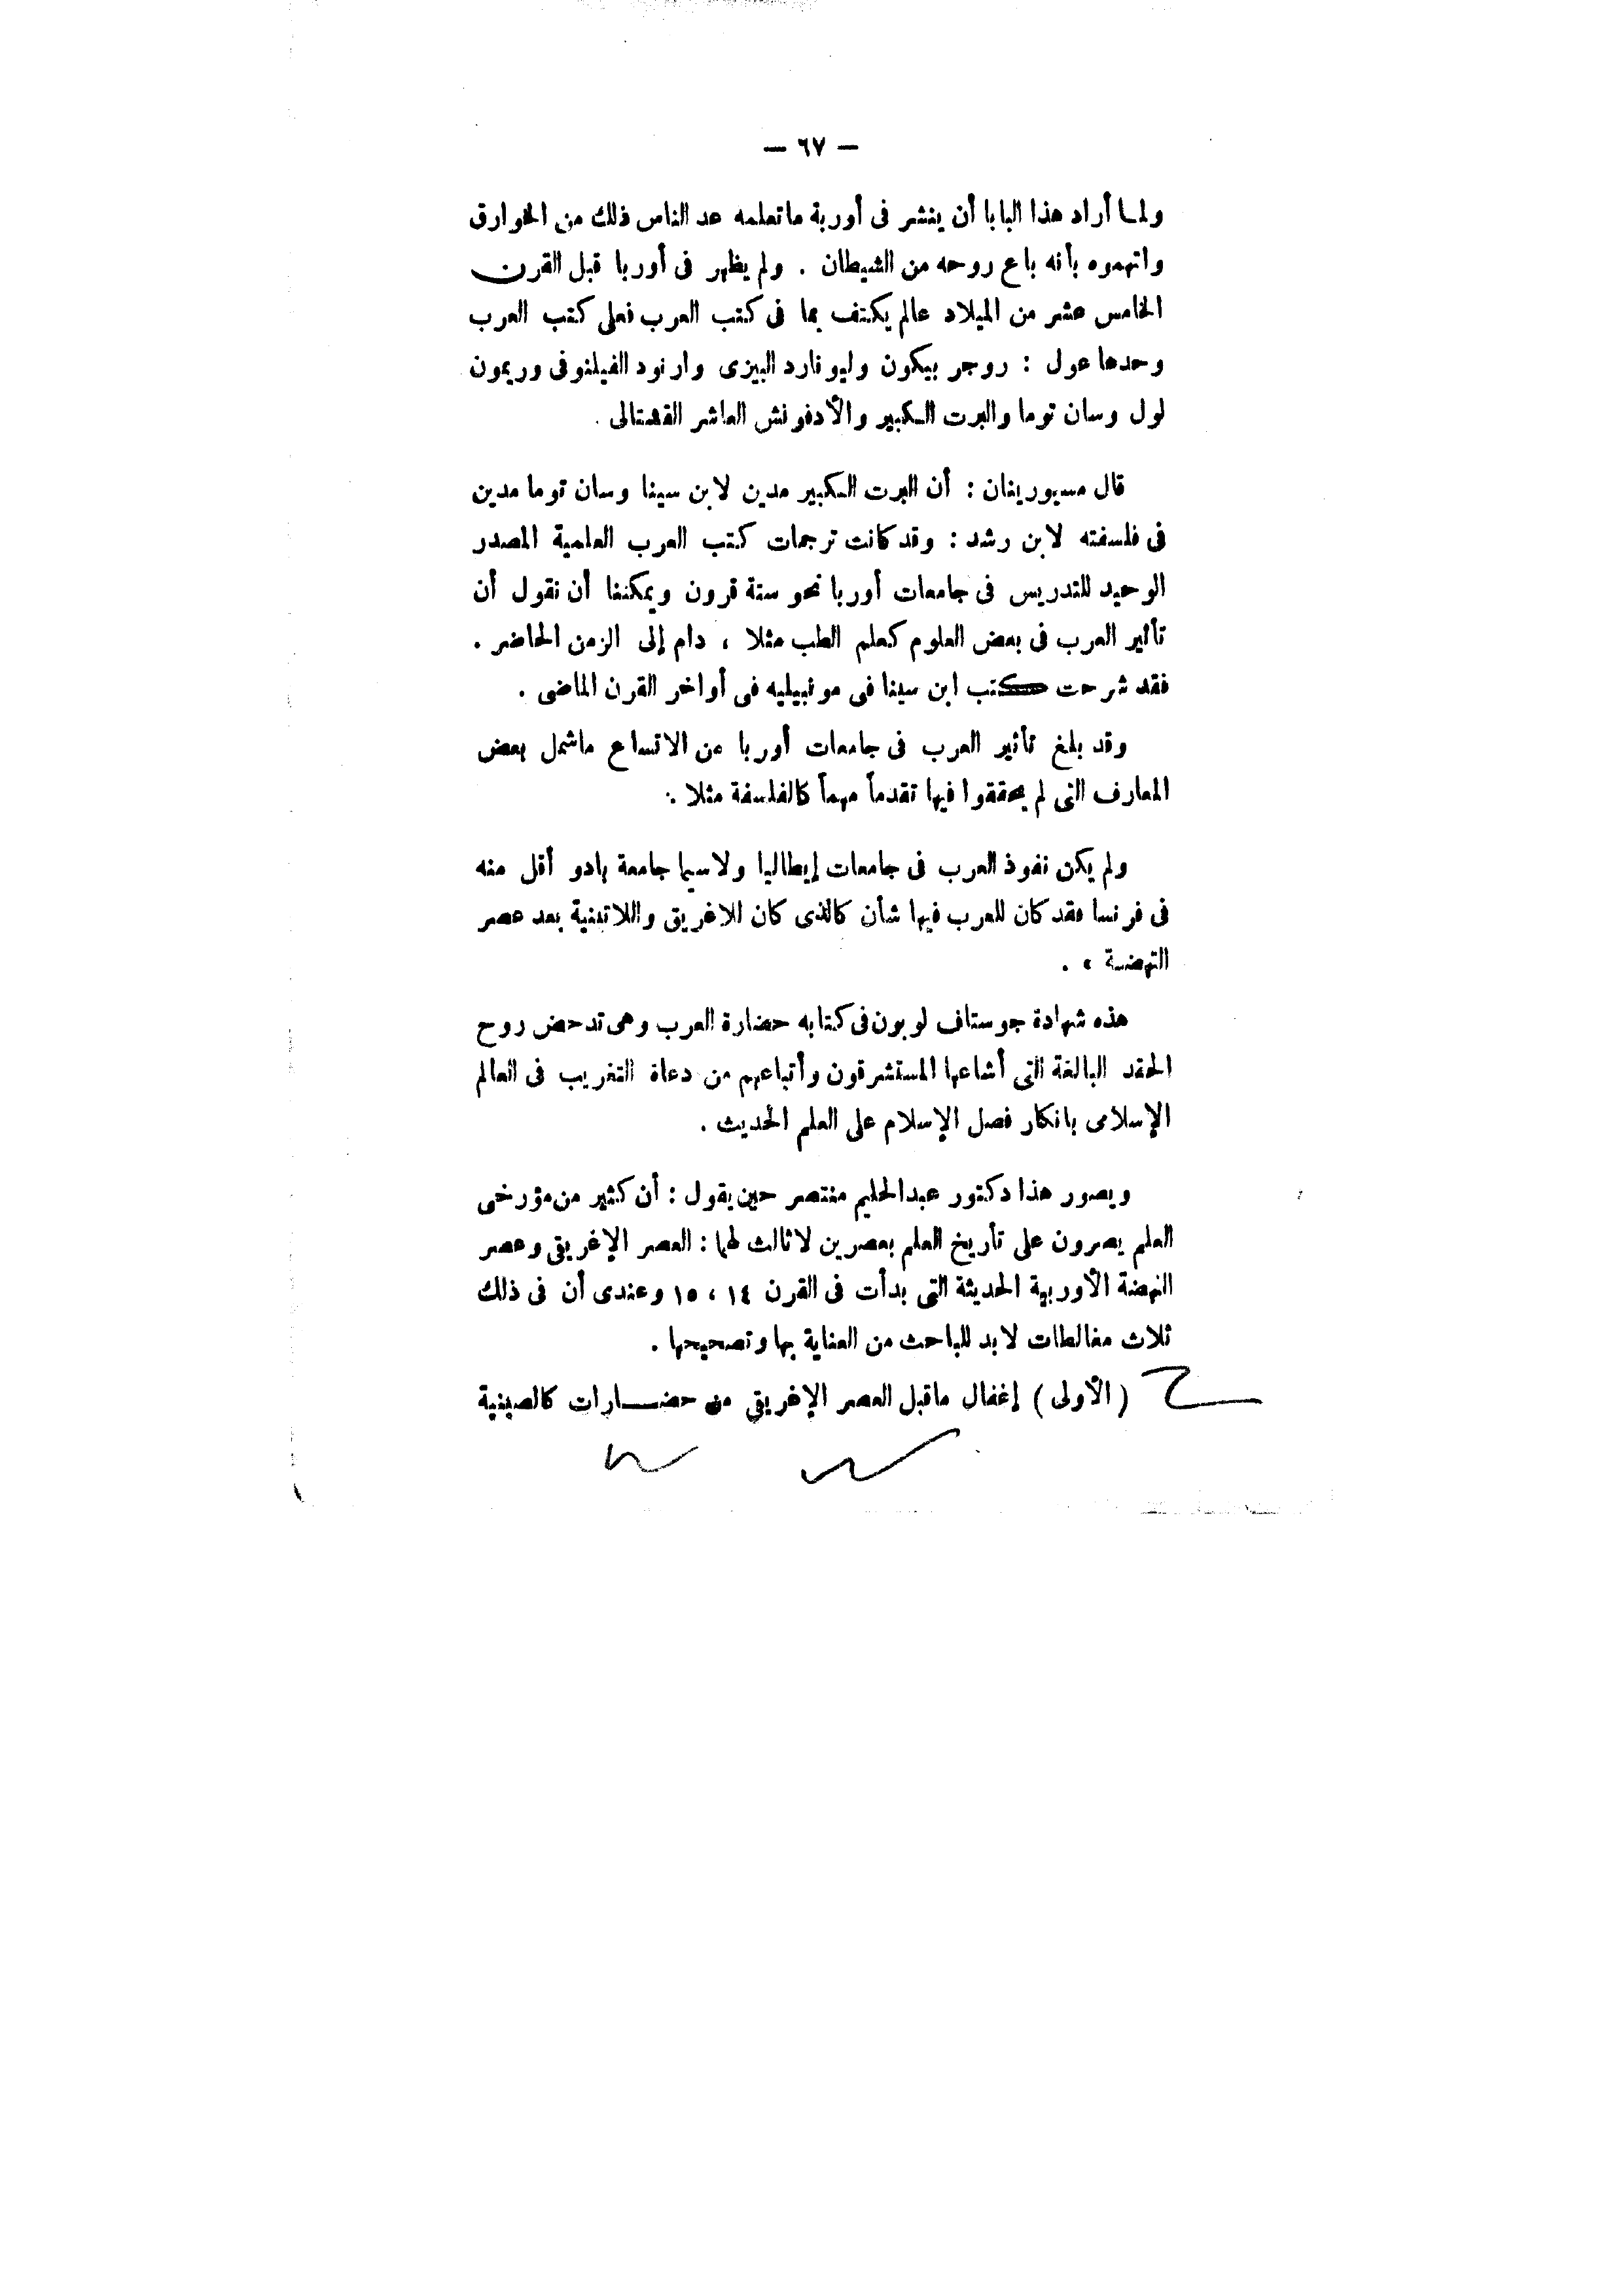 — ٦٧ —
ولما أراد هذا البابا أن ينشر فى أوربة ماتعلمه عد الناس ذلك من الخوارق
واتهموه بأنه باع روحه من الشيطان . ولم يظهر فى أوربا قبل القرن
الخامس عشر من الميلاد عالم يكتف بما فى كتب العرب فعلى كتب العرب
وحدها عول : روجر بيكون وليونارد البيزى وارنود الفيلنوفى وريمون
لول وسان توما والبرت الكبير والأدفونش العاشر القشتالى .
قال مسيورينان : أن البرت الكبير مدين لابن سينا وسان توما مدين
فى فلسفته لابن رشد : وقد كانت ترجمات كتب العرب العلمية المصدر
الوحيد للتدريس فى جامعات أوربا نحو ستة قرون ويمكننا أن نقول أن
تأثير العرب فى بعض العلوم كعلم الطب مثلا ، دام إلى الزمن الحاضر .
فقد شرحت كتب ابن سينا فى مونبيليه فى أواخر القرن الماضى .
وقد بلغ تأثير العرب فى جامعات أوربا من الاتساع ماشمل بعض
المعارف التى لم يحققوا فيها تقدماً مهماً كالفلسفة مثلا .
ولم يكن نفوذ العرب فى جامعات إيطاليا ولاسيما جامعة بادو أقل منه
فى فرنسا فقد كان للعرب فيها شأن كالذى كان للاغريق واللاتينية بعد عصر
النهضة » .
هذه شهادة جوستاف لوبون فى كتابه حضارة العرب وهى تدحض روح
الحقد البالغة التى أشاعها المستشرقون وأتباعهم من دعاة التغريب فى العالم
الإسلامى بانكار فصل الإسلام على العلم الحديث .
ويصور هذا دكتور عبدالحليم منتصر حين يقول : أن كثير من مؤرخى
العلم يصرون على تأريخ العلم بعصرين لاثالث لهما : العصر الإغريقى وعصر
النهضة الأوربية الحديثة التى بدأت فى القرن ١٤ ، ١٥ وعندى أن فى ذلك
ثلاث مغالطات لابد للباحث من العناية بها وتصحيحها .
(الأولى) إغفال ماقبل العصر الإغريقى من حضارات كالصينية